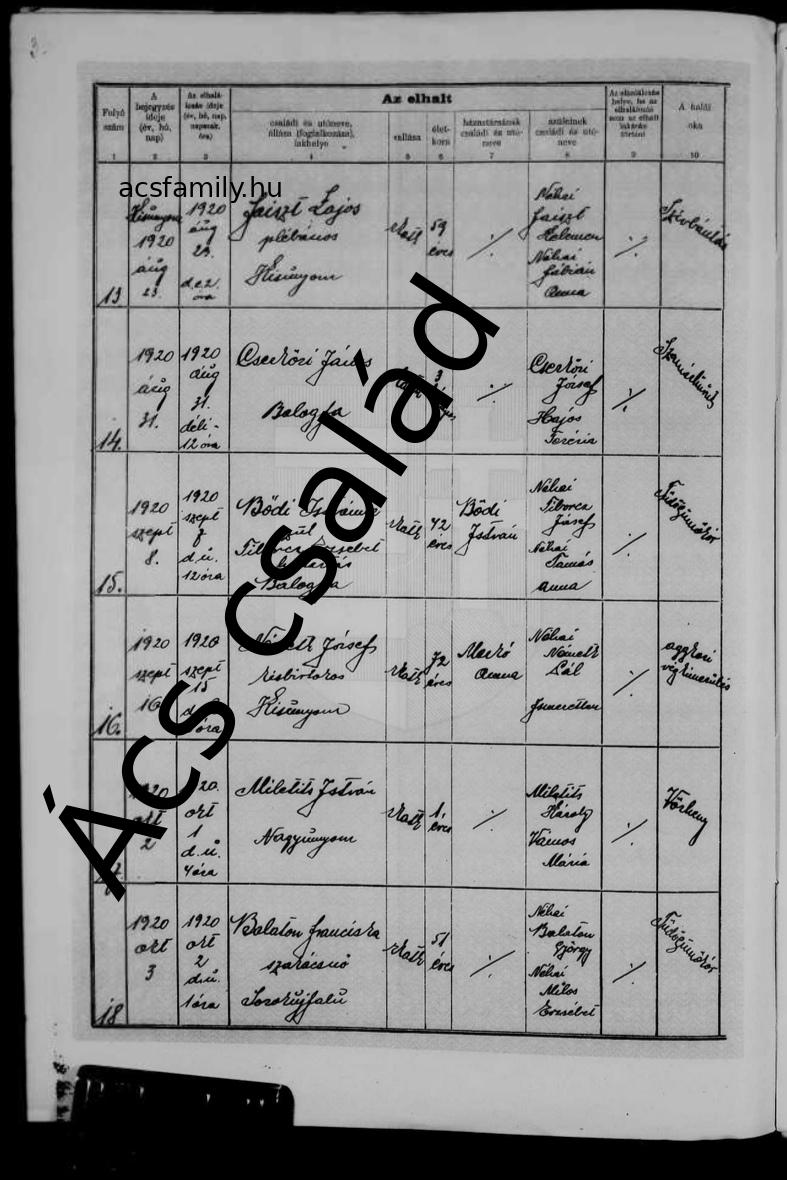 3.
Az elhalt
Folyó szám
A bejegyzés ideje (év, hó, nap)
Az elhalá- lozás ideje (év, hó, nap, napszak, óra)
családi és utóneve, állása (foglalkozása), lakhelye
vallása
élet- kora
házastársának családi és utó- neve
szüleinek családi és utó- neve
Az elhalálozás helye, ha az elhalálozás nem az elhalt lakásán történt
A halál oka
1 2 3 4 5 6 7 8 9 10
acsfamily.hu
13
1920 aug 23.
1920 aug 23. d.e. 2 óra
Jaiszt Lajos
plébános
Kisunyom
59 éves
·/·
Néhai
Jaiszt
Kelemen
Néhai
Fábián
Anna
·/·
14.
1920 aug 31.
1920 aug 31. déli 12 óra
Cserkőri János
Balogfa
3
·/·
Cserkőri
József
Hajos
Terézia
·/·
15.
1920 szept 8.
1920 szept 7 d.u. 12 óra
Bődi Istvánné
szül
Tiborcz Erzsébet
Balogfa
42 éves
Bődi
István
Néhai
Tiborcz
József
Néhai
Tamás
Anna
·/·
Tüdőgümőkór
16.
1920 szept 16
1920 szept 15
Németh József
kisbirtokos
Kisunyom
72 éves
Markó
Anna
Néhai
Németh
Pál
Ismeretlen
·/·
aggkori
végkimerülés
1920 okt 2
okt 1 d.u. 4 óra
Miletits István
Nagyunyom
1 éves
·/·
Miletits
Károly
Vámos
Mária
·/·
Vörheny
18
1920 okt 3
1920 okt 2 d.u. 1 óra
Balaton Franciska
szakácsnő
Sorokujfalu
51 éves
·/·
Néhai
Balaton
György
Néhai
Milos
Erzsébet
·/·
Tüdőgümőkór
Ács család